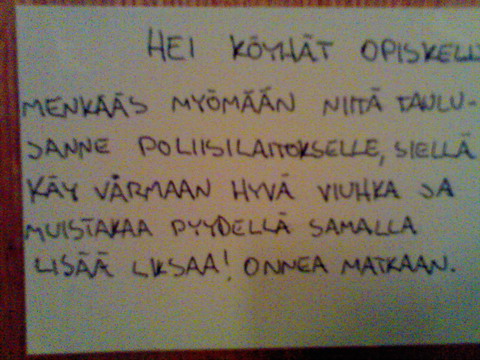 HEI KÖYHÄT OPISKELI
MENKÄÄS MYÖMÄÄN NIITÄ TAULU-
JANNE POLIISILAITOKSELLE, SIELLÄ
KÄY VÄRMAAN HYVÄ VIUHKA JA
MUISTAKAA PYYDELLÄ SAMALLA
LISÄÄ LIKSAA! ONNEA MATKAAN.